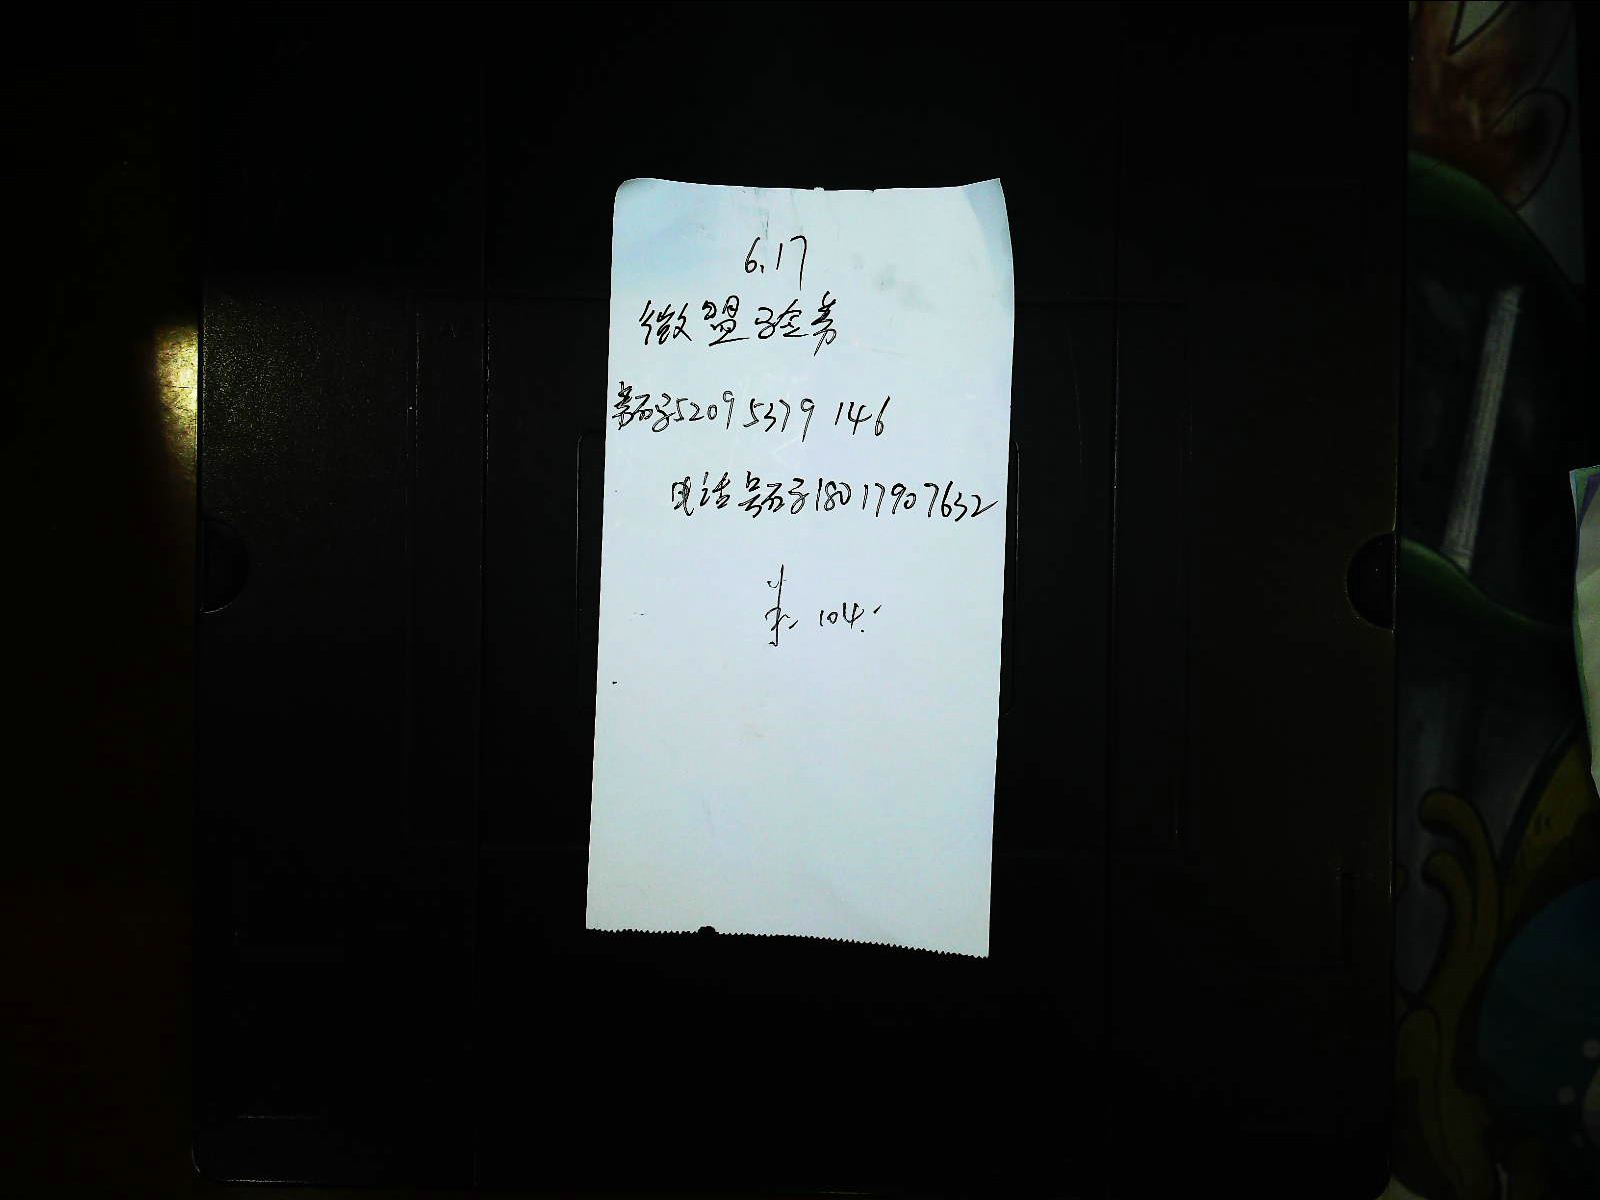 6.17
微盟验券
券码52095379146
电话号码18017907632
米104.